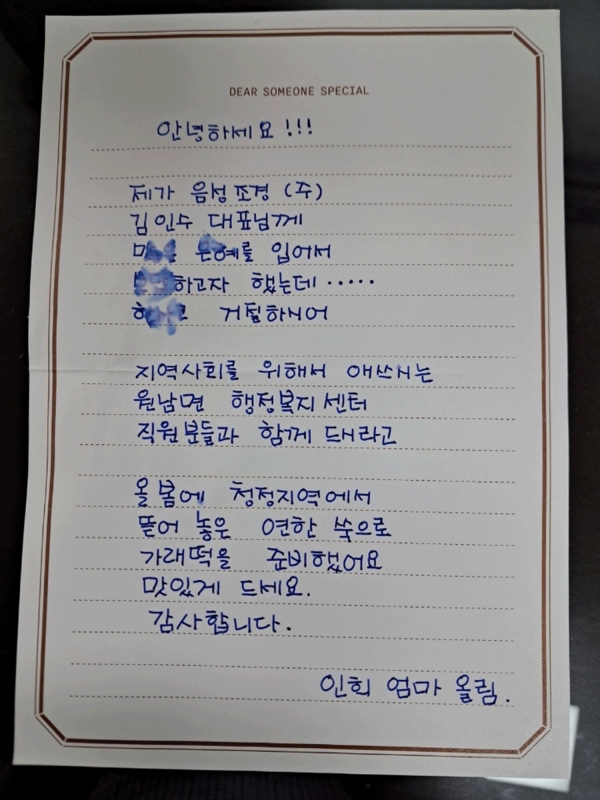 DEAR SOMEONE SPECIAL
안녕하세요!!!
제가 음성조경 (주)
김인수 대표님께
은혜를 입어서
하고자 했는데 ·····
거절하시어
지역사회를 위해서 애쓰시는
원남면 행정복지센터
직원분들과 함께 드시라고
올봄에 청정지역에서
뜯어 놓은 연한 쑥으로
가래떡을 준비했어요
맛있게 드세요.
감사합니다.
인희 엄마 올림.